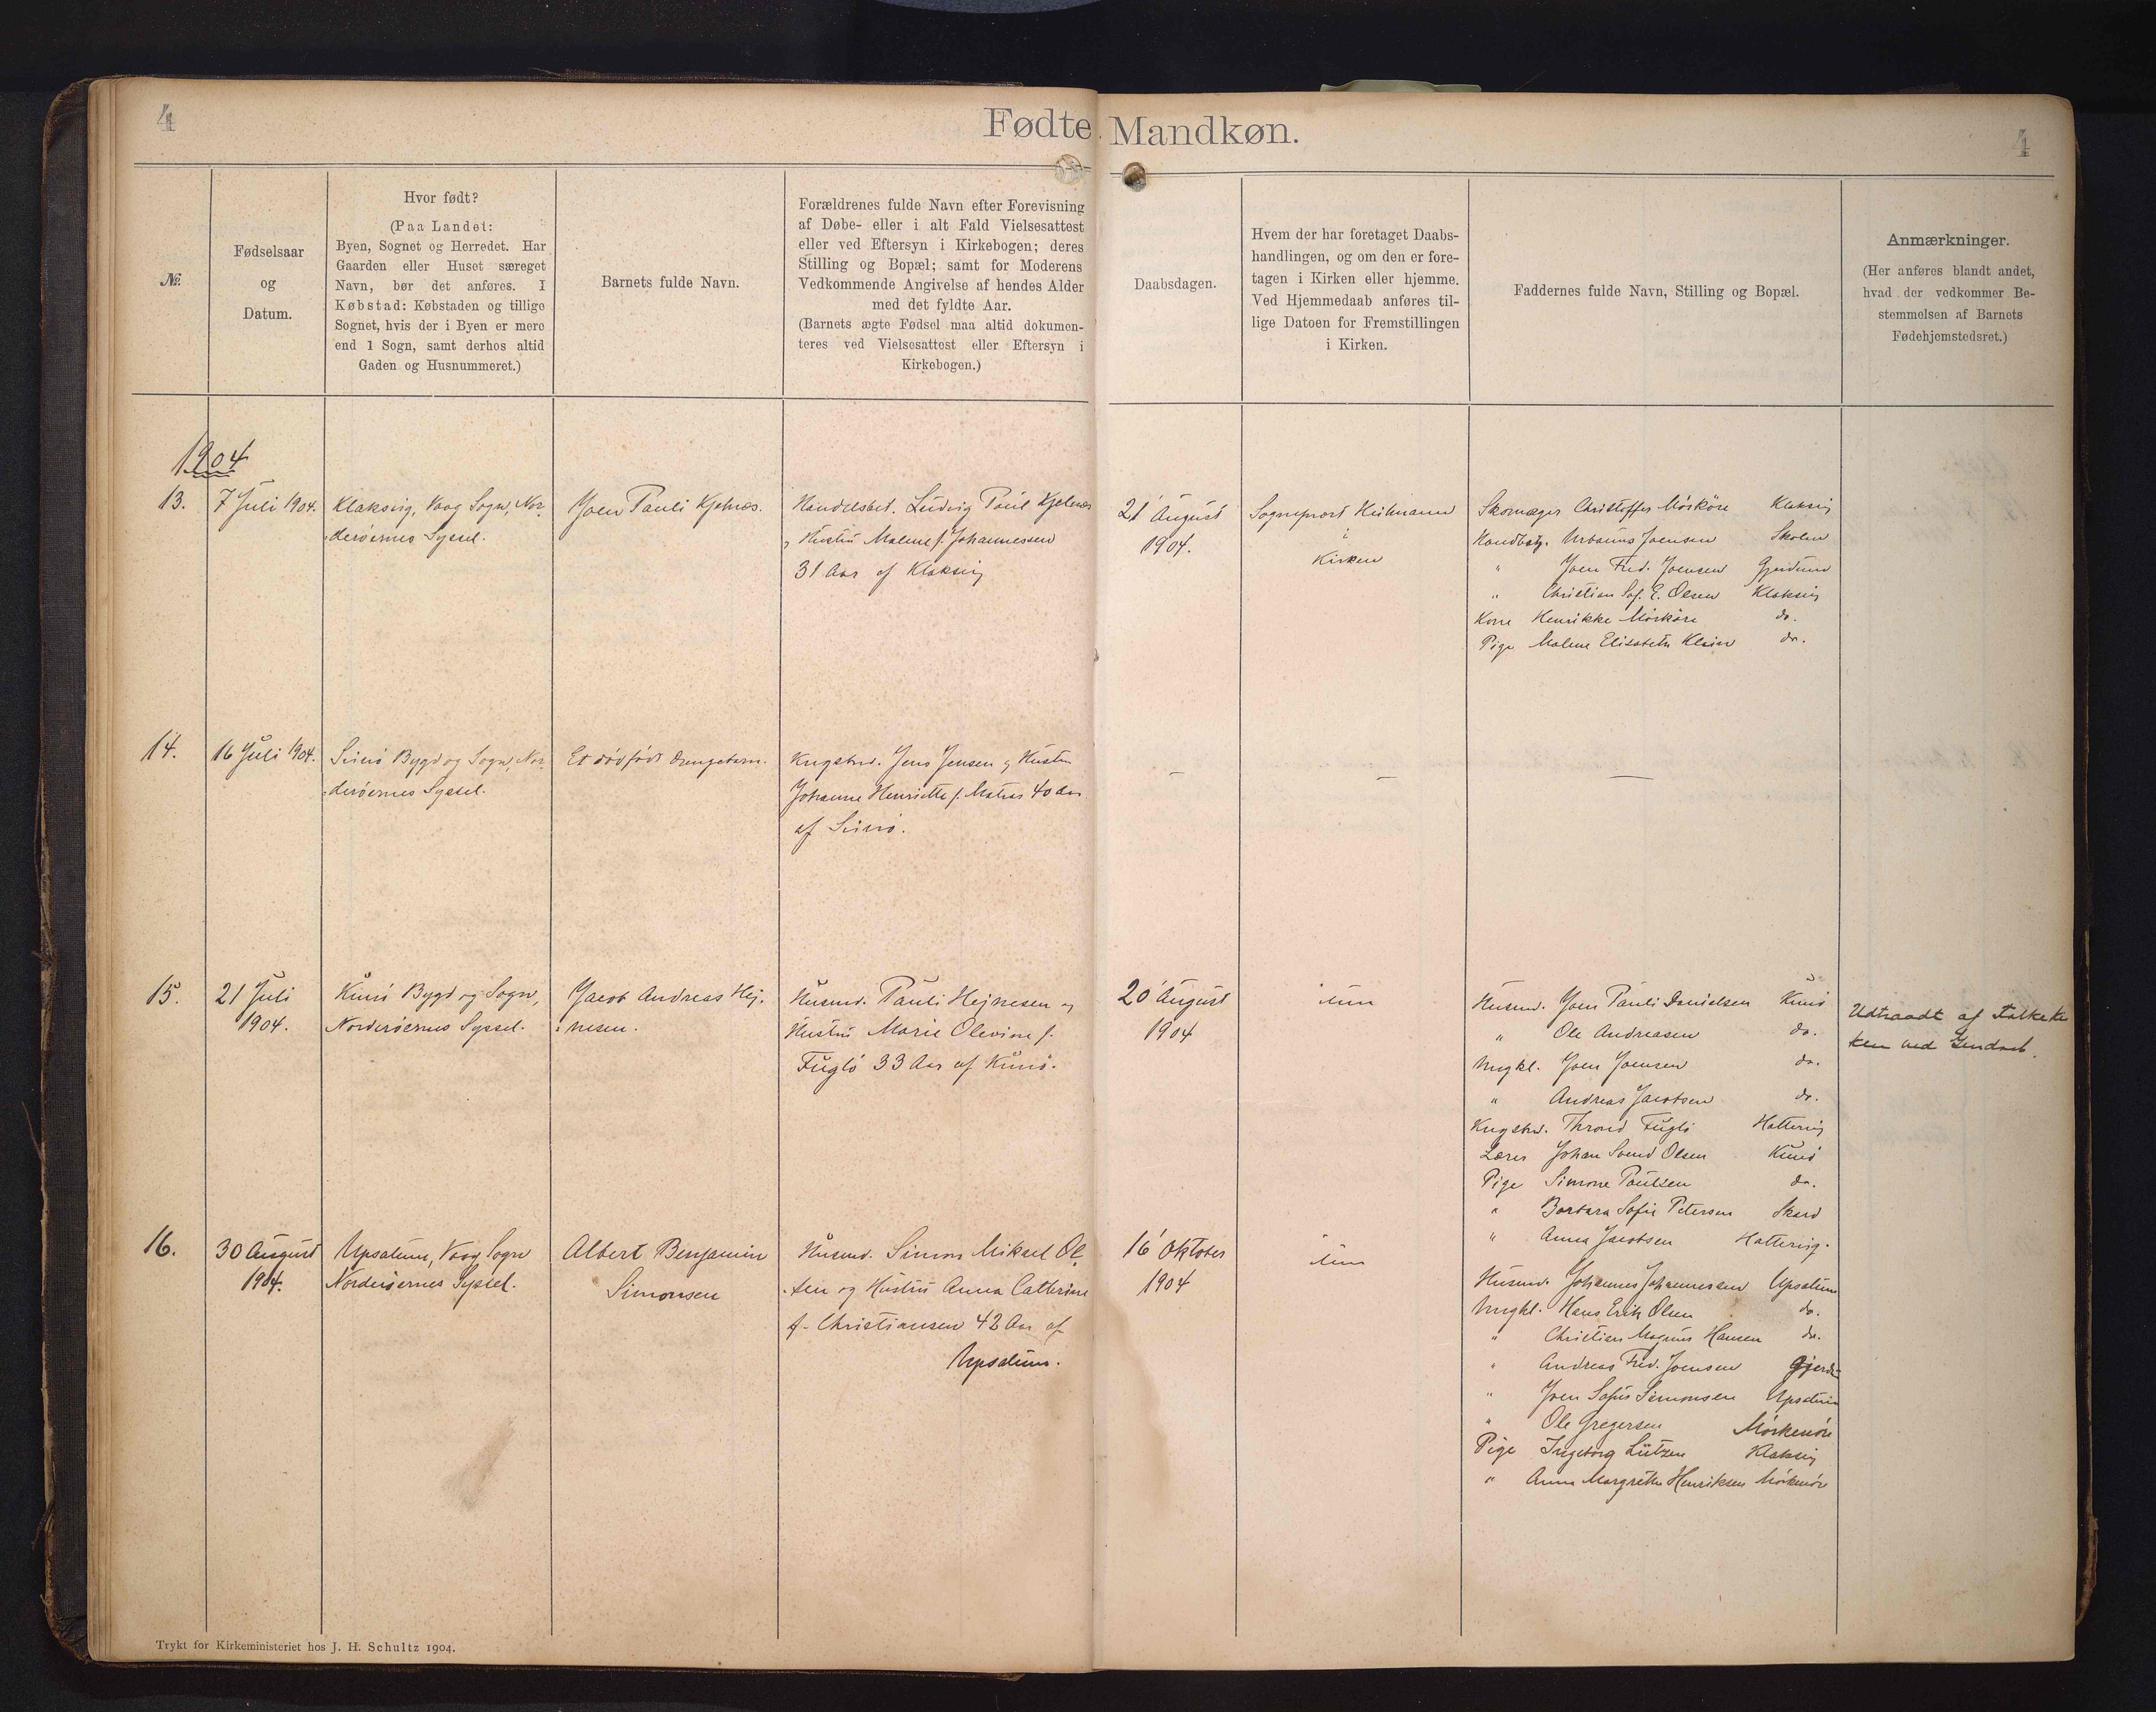 4
Fødte Mandkøn.
4
№.
Fødselsaar
og
Datum.
Hvor født?
(Paa Landet:
Byen, Sognet og Herredet. Har
Gaarden eller Huset særeget
Navn, bør det anføres. I
Købstad: Købstaden og tillige
Sognet, hvis der i Byen er mere
end 1 Sogn, samt derhos altid
Gaden og Husnummeret.)
Barnets fulde Navn.
Forældrenes fulde Navn efter Forevisning
af Døbe- eller i alt Fald Vielsesattest
eller ved Eftersyn i Kirkebogen; deres
Stilling og Bopæl; samt for Moderens
Vedkommende Angivelse af hendes Alder
med det fyldte Aar.
(Barnets ægte Fødsel maa altid dokumen-
teres ved Vielsesattest eller Eftersyn i
Kirkebogen.)
Daabsdagen.
Hvem der har foretaget Daabs-
handlingen, og om den er fore-
tagen i Kirken eller hjemme.
Ved Hjemmedaab anføres til-
lige Datoen for Fremstillingen
i Kirken.
Faddernes fulde Navn, Stilling og Bopæl.
Anmærkninger.
(Her anføres blandt andet,
hvad der vedkommer Be-
stemmelsen af Barnets
Fødehjemstedsret.)
1904
13.
7 Juli 1904.
Klaksvig, Vaag Sogn, Nor-
derøernes Syssel.
Joen Pauli Kjølnæs.
Handelsbet. Ludvig Poul Kjølnæs
og Hustru Malene f. Johannessen
31 Aar af Klaksvig
21 August
1904.
Sognepræst
i
Kirken
Skomager Christoffer Mørköre Klaksvig
Urbanus Joensen
" Joen Fred. Joensen
" Christian Sof. E. Olsen Klaksvig
Kone Henrikke Mørköre do.
Pige Malene Elisabeth Klein do.
14.
16 Juli 1904.
Svinö Bygd og Sogn, Nor-
derøernes Syssel.
Et dödfödt Drengebarn.
Kngsbnd. Jens Jensen og Hustru
Johanne Henriette f. Matras 40 Aar
af Svinö.
—
—
—
15.
21 Juli
1904.
Kunö Bygd og Sogn,
Norderøernes Syssel.
Jacob Andreas Hej-
nesen.
Husmd. Pauli Hejnesen og
Hustru Marie Olevine f.
Fuglö 33 Aar af Kunö.
20 August
1904
Husmd. Joen Pauli Danielsen Kunö
" Ole Andreasen do.
Ungkl. Joen Joensen do.
" Andreas Jacobsen do.
Kngsbnd. Thrond Fuglö Hattervig
Lærer Johan Svend Olsen Kunö
Pige Simone Poulsen do.
" Barbara Sofie Petersen Skard
" Anna Jacobsen Hattervig.
Udtraadt af Folkekir
ken ved
16.
30 August
1904.
Upsalum, Vaag Sogn
Norderøernes Syssel.
Albert Benjamin
Simonsen
Husmd. Simon Mikael Ol-
sen og Hustru Anna Catherine
f. Christiansen 42 Aar af
Upsalum.
16 Oktober
1904
Husmd. Johannes Johannessen Upsalum
Ungkl. Hans Erik Olsen do.
" Christian Magnus Hansen do.
" Andreas Fred. Joensen
" Joen Sofus Simonsen Upsalum
" Ole Gregersen
Pige Ingeborg Lützen Klaksvig
" Anna Margrethe Henriksen
Trykt for Kirkeministeriet hos J. H. Schultz 1904.